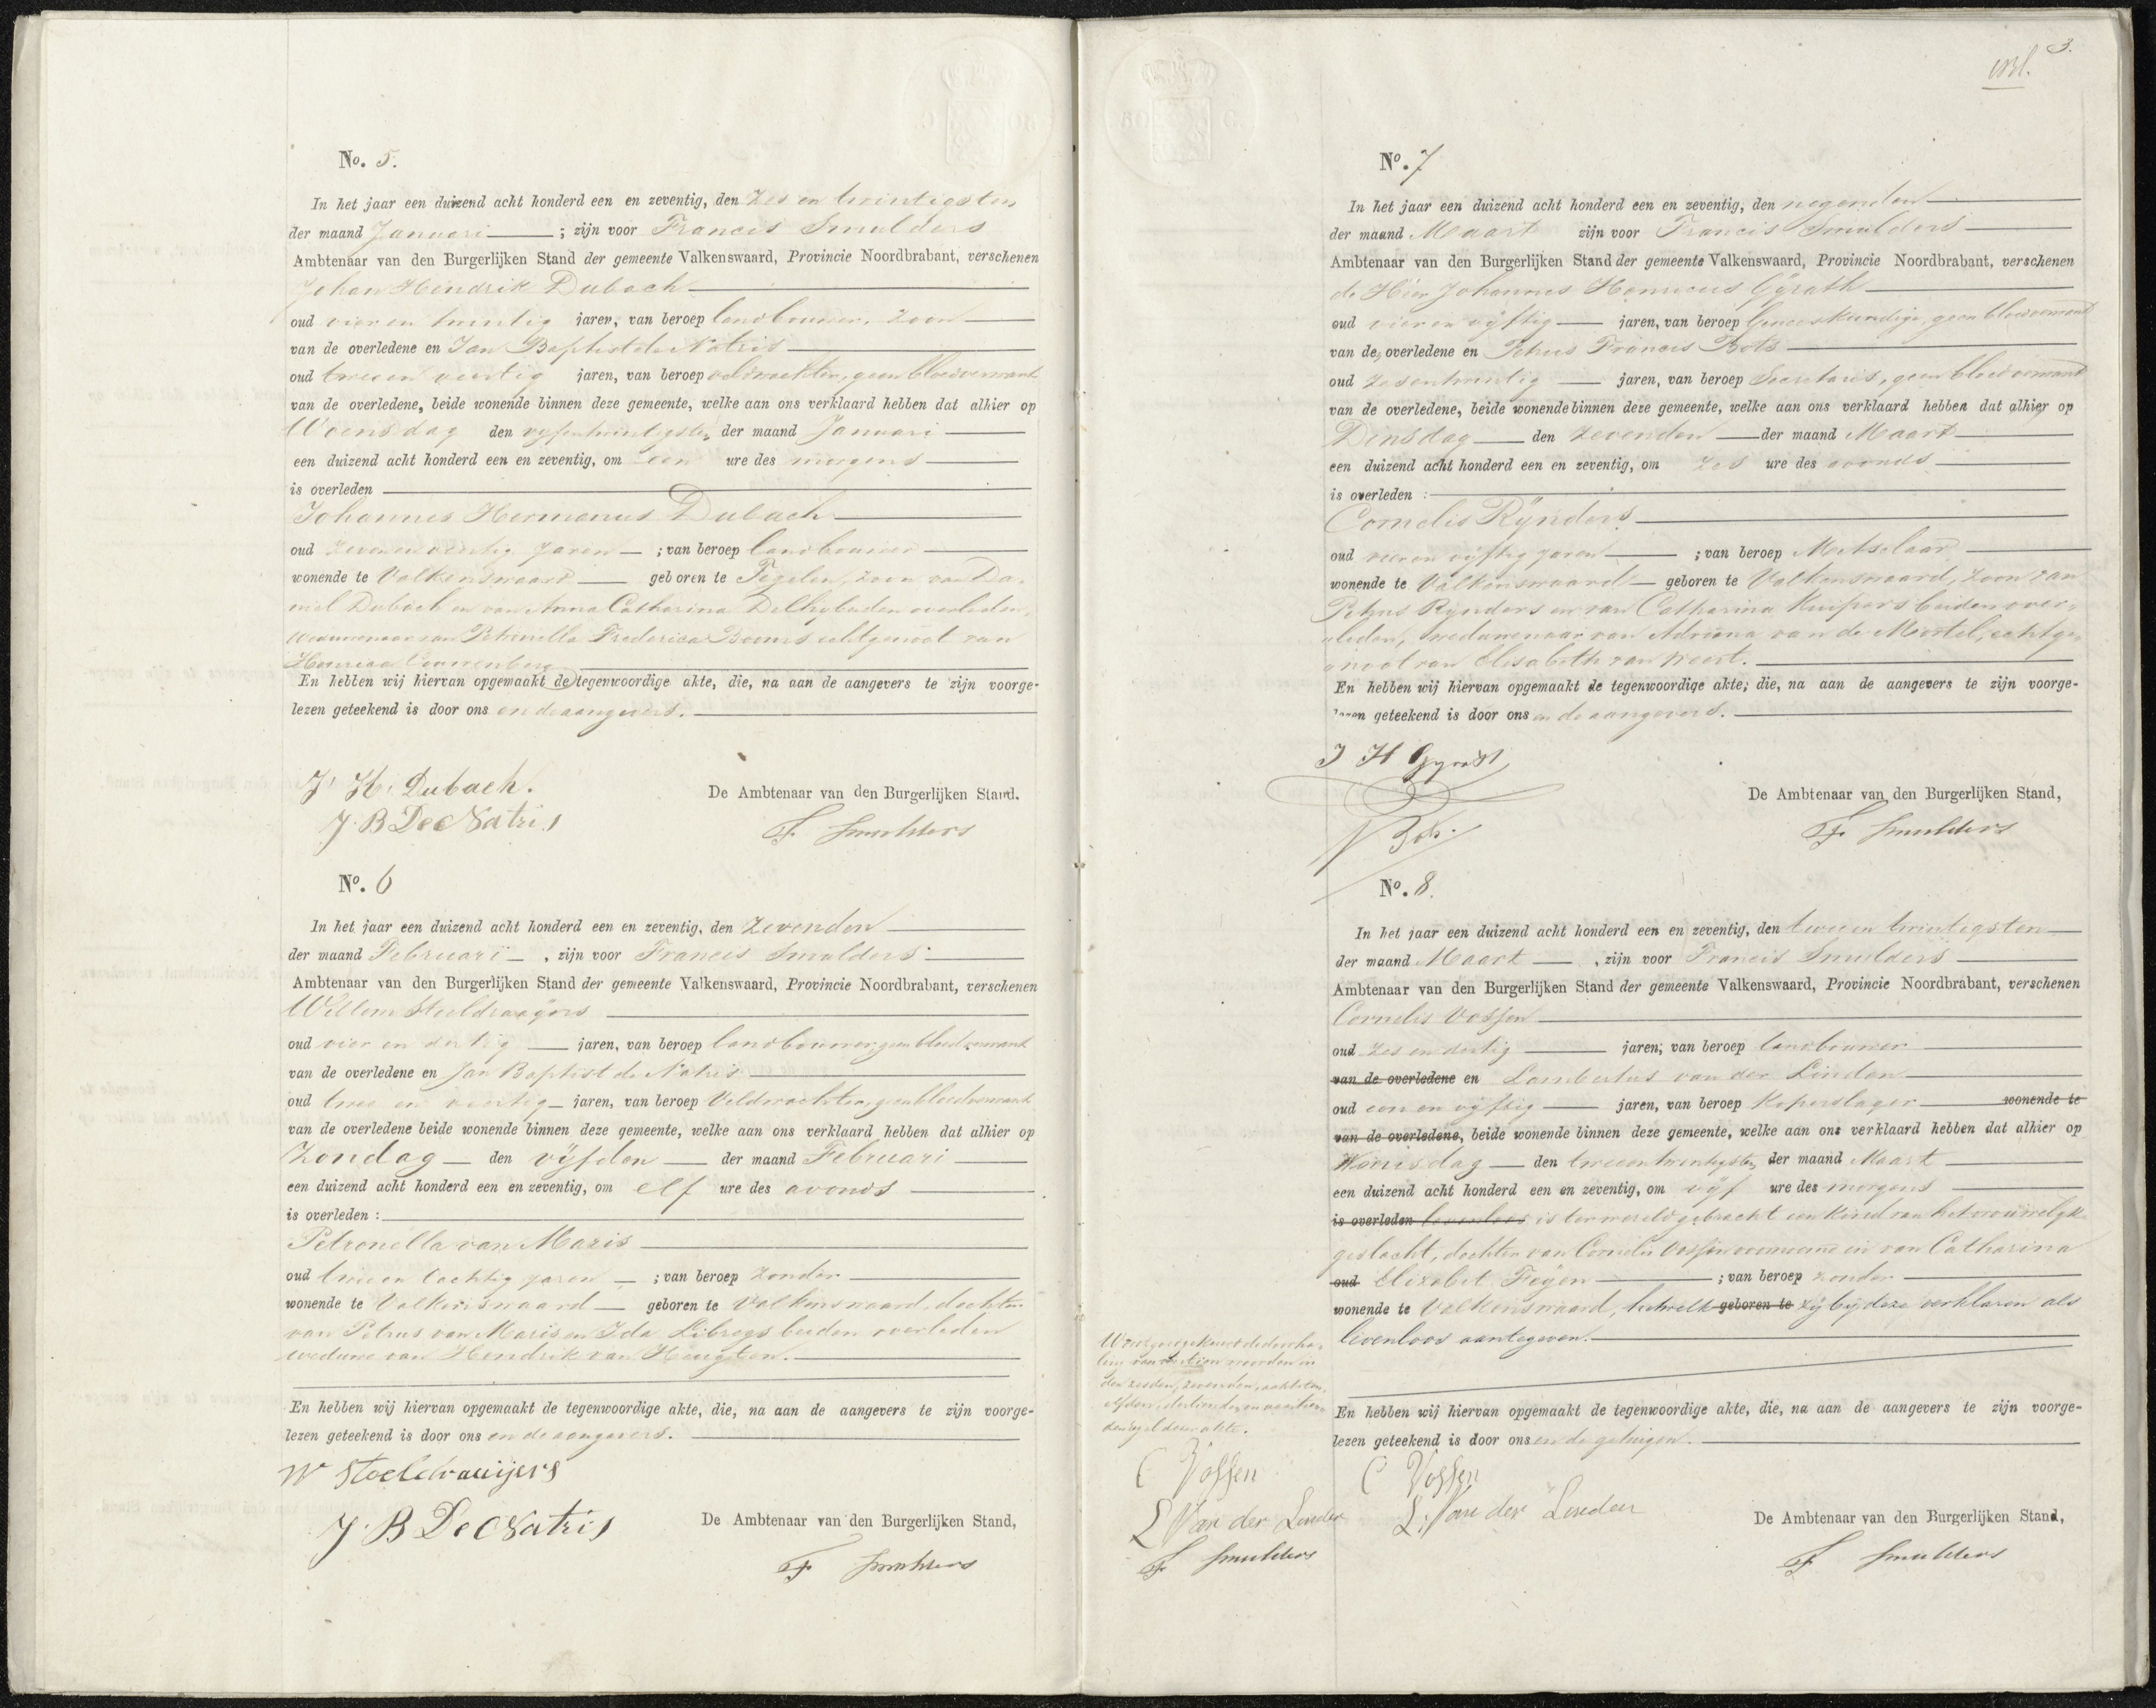 No. 5.
In het jaar een duizend acht honderd een en zeventig, den Zes en twintigsten
der maand Januari ; zijn voor Francis Smulders
Ambtenaar van den Burgerlijken Stand der gemeente Valkenswaard, Provincie Noordbrabant, verschenen
Johan Hendrik Dubach
oud vier en twintig jaren, van beroep landbouwer, zoon
van de overledene en Jan Baptist de Natris
oud twee en veertig jaren, van beroep veldwachter, geen bloedverwant
van de overledene, beide wonende binnen deze gemeente, welke aan ons verklaard hebben dat alhier op
Woensdag den vyfentwintigsten der maand Januari
een duizend acht honderd een en zeventig, om een ure des morgens
is overleden
Johannes Hermanus Dubach
oud zeven en veertig jaren ; van beroep landbouwer
wonende te Valkenswaard geboren te Tegelen, zoon van Da-
niel Dubach en van Anna Catharina overleden,
weduwenaar van Petronella Frederica Booms echtgenoot van
Henrica
En hebben wij hiervan opgemaakt de tegenwoordige akte, die, na aan de aangevers te zijn voorge-
lezen geteekend is door ons en de aangevers.
J. H. Dubach.
J. B De Natris
De Ambtenaar van den Burgerlijken Stand.
F. Smulders
No. 6
In het jaar een duizend acht honderd een en zeventig, den Zevenden
der maand Februari , zijn voor Francis Smulders
Ambtenaar van den Burgerlijken Stand der gemeente Valkenswaard, Provincie Noordbrabant, verschenen
Willem Stoeldraayers
oud vier en dertig jaren, van beroep landbouwer, geen bloedverwant
van de overledene en Jan Baptist de Natris
oud twee en veertig jaren, van beroep Veldwachter, geen bloedverwant
van de overledene beide wonende binnen deze gemeente, welke aan ons verklaard hebben dat alhier op
Zondag den vÿfden der maand Februari
een duizend acht honderd een en zeventig, om elf ure des avonds
is overleden :
Petronella van Maris
oud twee en tachtig jaren ; van beroep zonder
wonende te Valkenswaard geboren te Valkenswaard, dochter
van Petrus van Maris en Ida Libregs beiden overleden
weduwe van Hendrik van Heugten.
En hebben wij hiervan opgemaakt de tegenwoordige akte, die, na aan de aangevers te zijn voorge-
lezen geteekend is door ons en de aangevers.
W Stoeldraaijers
J. B De Natris
De Ambtenaar van den Burgerlijken Stand,
F Smulders
3.
No. 7
In het jaar een duizend acht honderd een en zeventig, den negenden
der maand Maart zijn voor Francis Smulders
Ambtenaar van den Burgerlijken Stand der gemeente Valkenswaard, Provincie Noordbrabant, verschenen
de Heer Johannes Henricus Gÿrath
oud vier en vÿftig jaren, van beroep Geneeskundige, geen bloedverwant
van de overledene en Petrus Francis Bots
oud zesentwintig jaren, van beroep Secretaris, geen bloedverwant
van de overledene, beide wonende binnen deze gemeente, welke aan ons verklaard hebben dat alhier op
Dinsdag den zevenden der maand Maart
een duizend acht honderd een en zeventig, om zes ure des avonds
is overleden :
Cornelis Rÿnders
oud vier en vÿftig jaren ; van beroep Metselaar
wonende te Valkenswaard geboren te Valkenswaard, zoon van
Petrus Rÿnders en van Catharina Kuipers beiden over-
leden, weduwenaar van Adriana van de Mortel, echtge-
noot van Elisabeth van Weert.
En hebben wij hiervan opgemaakt de tegenwoordige akte, die, na aan de aangevers te zijn voorge-
lezen geteekend is door ons en de aangevers.
J H Gyrath
Bots
De Ambtenaar van den Burgerlijken Stand,
F. Smulders
No. 8.
In het jaar een duizend acht honderd een en zeventig, den twee en twintigsten
der maand Maart , zijn voor Francis Smulders
Ambtenaar van den Burgerlijken Stand der gemeente Valkenswaard, Provincie Noordbrabant, verschenen
Cornelis Vossen
oud zes en dertig jaren, van beroep landbouwer
van de overledene en Lambertus van der Linden
oud een en vÿftig jaren, van beroep Koperslager wonende te
van de overledene, beide wonende binnen deze gemeente, welke aan ons verklaard hebben dat alhier op
Woensdag den tweeentwintigsten der maand Maart
een duizend acht honderd een en zeventig, om vÿf ure des morgens
is overleden levenloos is ter wereld gebracht een kind van het vrouwelyk
geslacht, dochter van Cornelis Vossen voornoemd en van Catharina
oud Elizabet Feÿen ; van beroep zonder
wonende te Valkenswaard, hetwelk geboren te zÿ bÿ deze verklaren als
levenloos aantegeven.
En hebben wij hiervan opgemaakt de tegenwoordige akte, die, na aan de aangevers te zijn voorge-
lezen geteekend is door ons en de getuigen.
Wordt goedgekeurd de doorha-
ling van dertien woorden in
den zesden, zevenden, achtsten,
elfden, dertienden en veertien-
den regel dezer akte.
C Vossen
L Van der Linden
F Smulders
C Vossen
L. Van der Linden
De Ambtenaar van den Burgerlijken Stand,
F Smulders